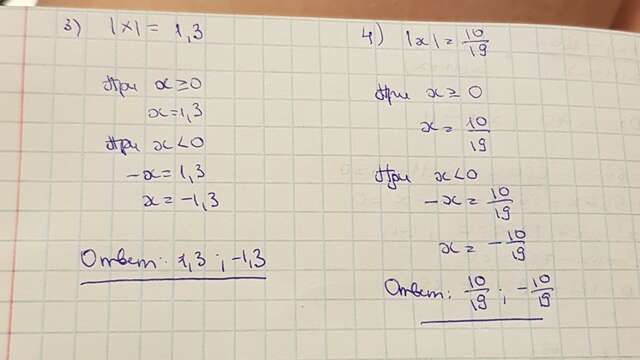 3) |x| = 1,3
При x ≥ 0
x = 1,3
При x < 0
-x = 1,3
x = -1,3
Ответ: 1,3 ; -1,3
4) |x| = 10/19
При x ≥ 0
x = 10/19
При x < 0
-x = 10/19
x = -10/19
Ответ: 10/19 ; -10/19